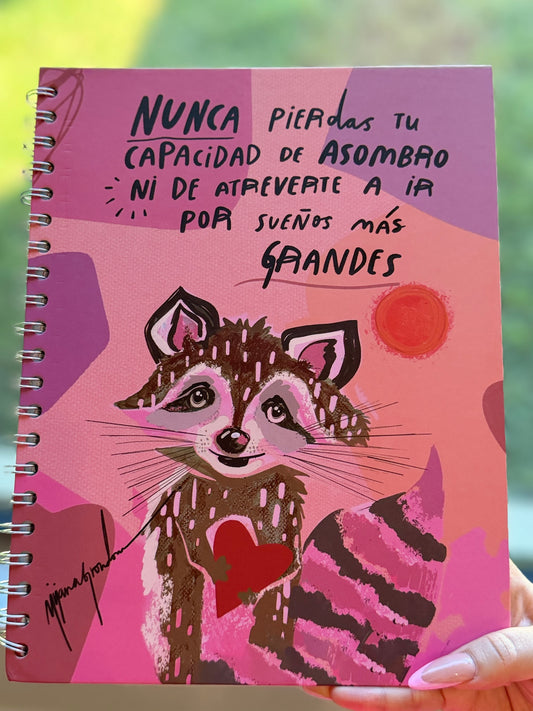 NUNCA PIERdas TU
CAPACIDAD DE ASOMBRO
NI DE ATREVERTE A IR
POR SUEÑOS MÁS
GRANDES